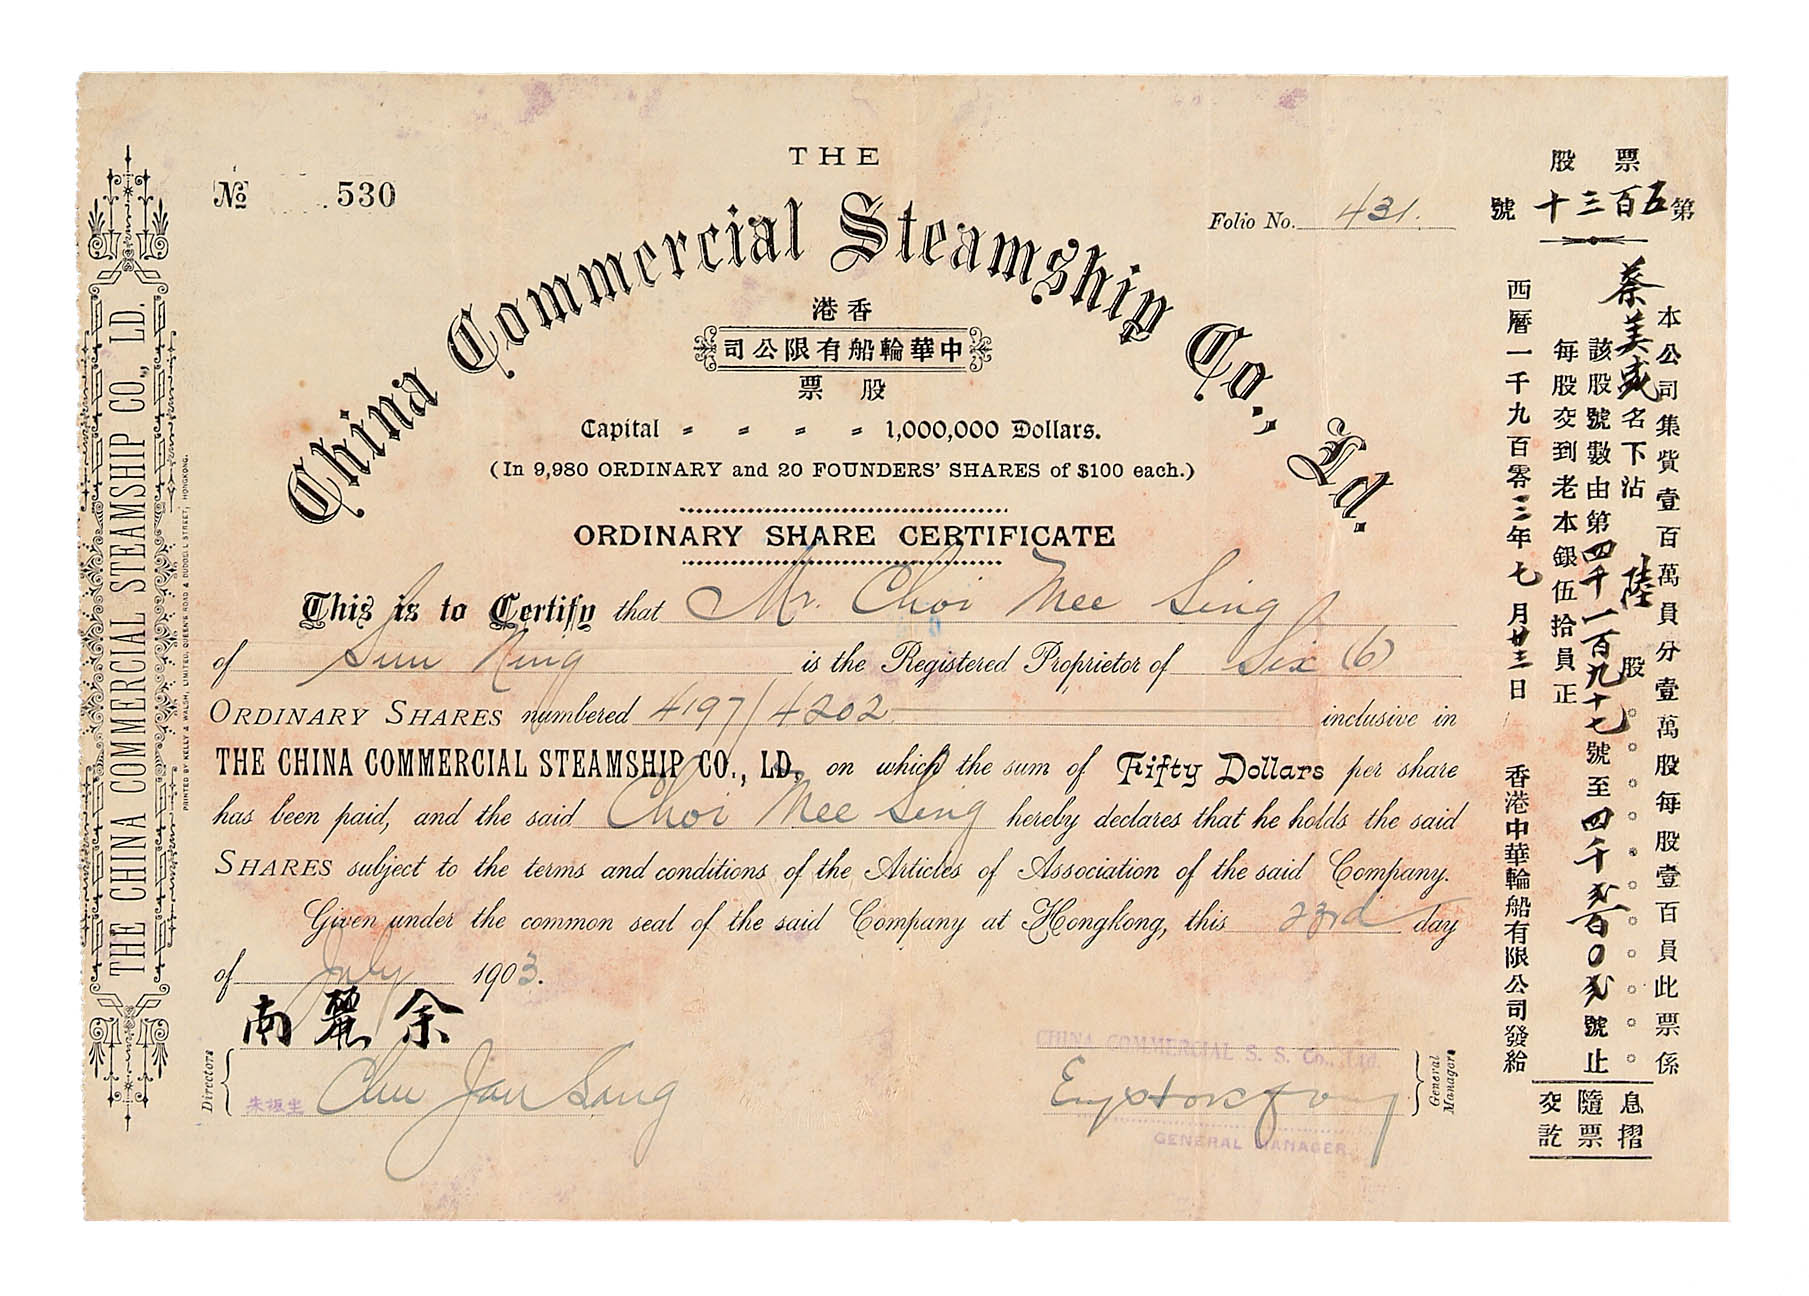 THE
China Commercial Steamship Co., Ld.
№ 530
Folio No. 431.
港香
司公限有船輪華中
票股
Capital = = = = 1,000,000 Dollars.
(In 9,980 ORDINARY and 20 FOUNDERS' SHARES of $100 each.)
ORDINARY SHARE CERTIFICATE
This is to Certify that Mr. Choi Mee Sing
of Sun Ning is the Registered Proprietor of Six (6)
ORDINARY SHARES numbered 4197/4202 inclusive in
THE CHINA COMMERCIAL STEAMSHIP CO., LD. on which the sum of Fifty Dollars per share
has been paid, and the said Choi Mee Sing hereby declares that he holds the said
SHARES subject to the terms and conditions of the Articles of Association of the said Company.
Given under the common seal of the said Company at Hongkong, this 23rd day
of July 1903.
南麗余
Directors
Chu Jan Sang
CHINA COMMERCIAL S. S. Co., Ltd.
GENERAL MANAGER.
General Managers
THE CHINA COMMERCIAL STEAMSHIP CO., LD.
PRINTED BY KELLY & WALSH, LIMITED, QUEEN'S ROAD & DUDDELL STREET, HONGKONG.
股票
號十三百五第
本公司集貲壹百萬員分壹萬股每股壹百員此票係
蔡美成名下沾陸股
該股號數由第四千一百九十七號至四千弍百0弍號止
每股交到老本銀伍拾員正
西曆一千九百零三年七月廿三日 香港中華輪船有限公司發給
息摺
隨票
交訖